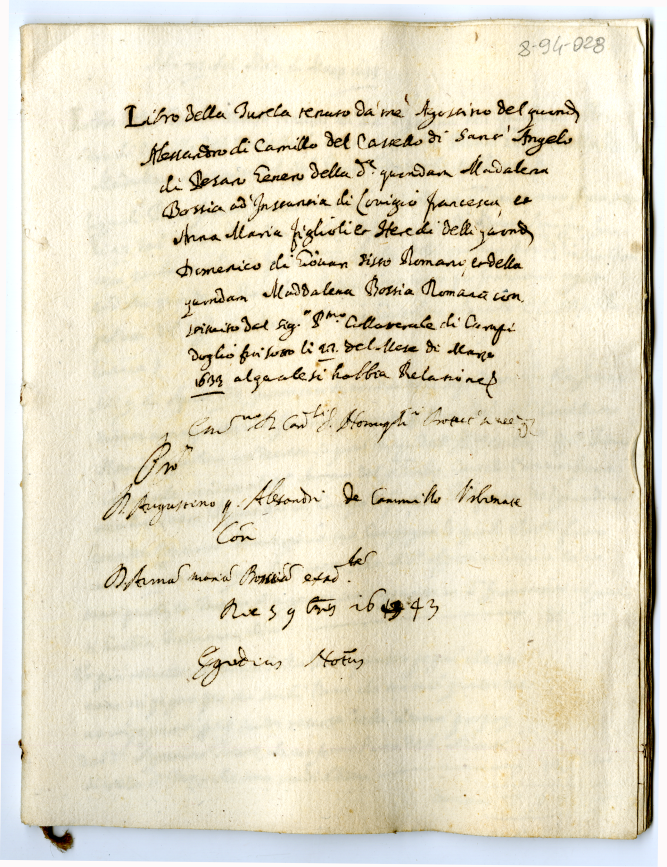 8-94-028
Libro della Tutela tenuto da mè Agostino del quond
Alessandro di Camillo del Castello di Sant' Angelo
di Pesaro Genero della d.ᵃ quondam Madalena
Bossia ad Instantia di francesca, et
Anna Maria figlioli et Heredi delli quond
Domenico di Giovan disto Romano, et della
quondam Maddalena Bossia Romana con
del Sig.ʳ P.ᵐᵒ Collaterale di Campi
doglio sotto li 22. del Mese di Marzo
1633 al quale si habbia Relatione
Pro
D. Augustino q. Alesandri de Cammillo Urbenate
Con
D. Anna maria Bossia
Die 5 9bris 16 43
Egidius Notus